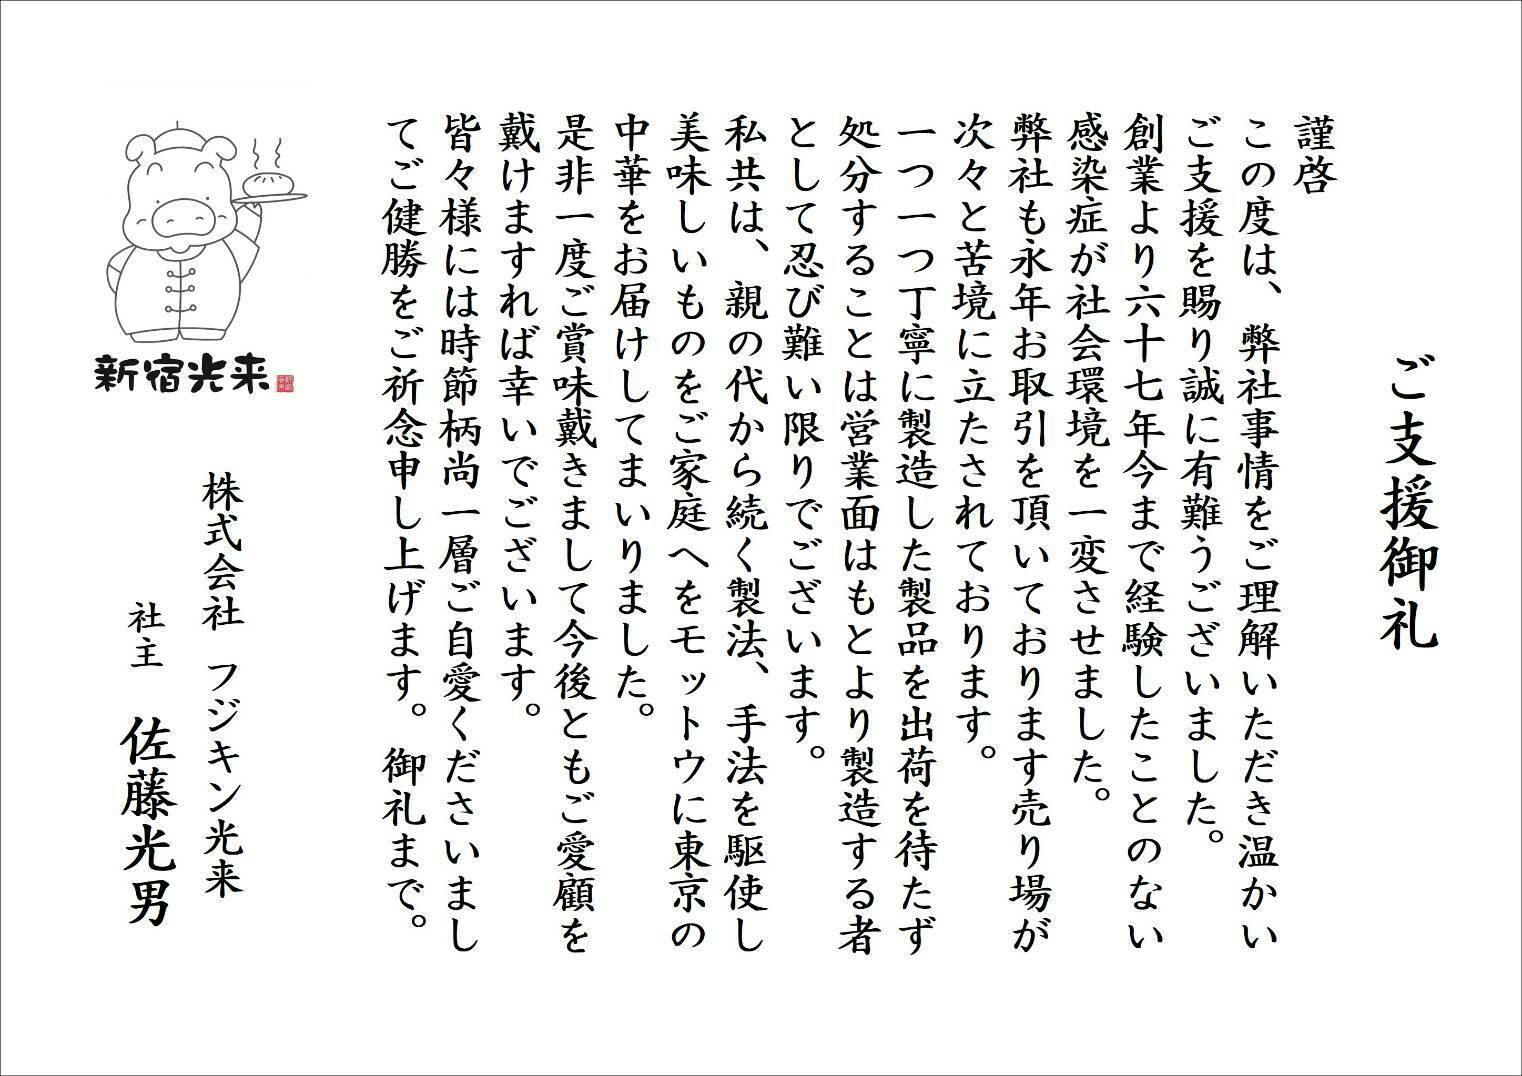 ご支援御礼
謹啓
この度は、弊社事情をご理解いただき温かい
ご支援を賜り誠に有難うございました。
創業より六十七年今まで経験したことのない
感染症が社会環境を一変させました。
弊社も永年お取引を頂いております売り場が
次々と苦境に立たされております。
一つ一つ丁寧に製造した製品を出荷を待たず
処分することは営業面はもとより製造する者
として忍び難い限りでございます。
私共は、親の代から続く製法、手法を駆使し
美味しいものをご家庭へをモットウに東京の
中華をお届けしてまいりました。
是非一度ご賞味戴きまして今後ともご愛顧を
戴けますれば幸いでございます。
皆々様には時節柄尚一層ご自愛くださいまし
てご健勝をご祈念申し上げます。御礼まで。
株式会社 フジキン光来
社主 佐藤光男
新宿光来